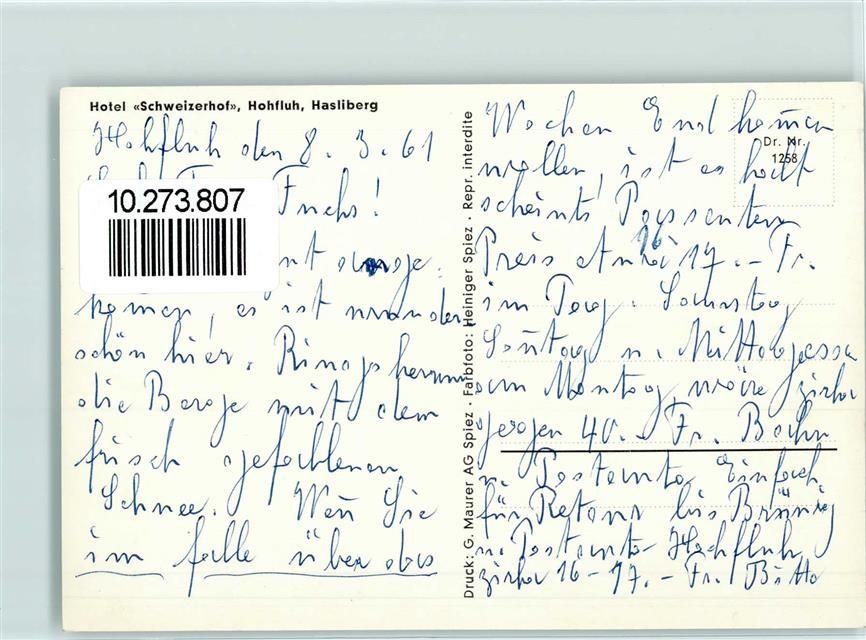 Hotel «Schweizerhof», Hohfluh, Hasliberg
Hohfluh den 8. 3. 61
Fuchs!
10.273.807
komen, es ist wunder
schön hier. Rings herum
die Berge mit dem
frisch gefahlenen
Schnee. Wen̄ Sie
im falle über das
Druck: G. Maurer AG Spiez · Farbfoto: Heiniger Spiez · Repr. interdite
Dr. Nr.
1258
Wochen End kom̄en
wollen, ist es halt
scheints Passanten
Preis 16 17.- Fr.
im Tag. Samstag
Son̄tag u. Mittagessen
am Montag, wäre zirka
gegen 40.- Fr. Bahn
u. Postauto Einfach
für Retour bis Brünig
u. Postauto Hohfluh
zirka 16-17.- Fr. Bitte